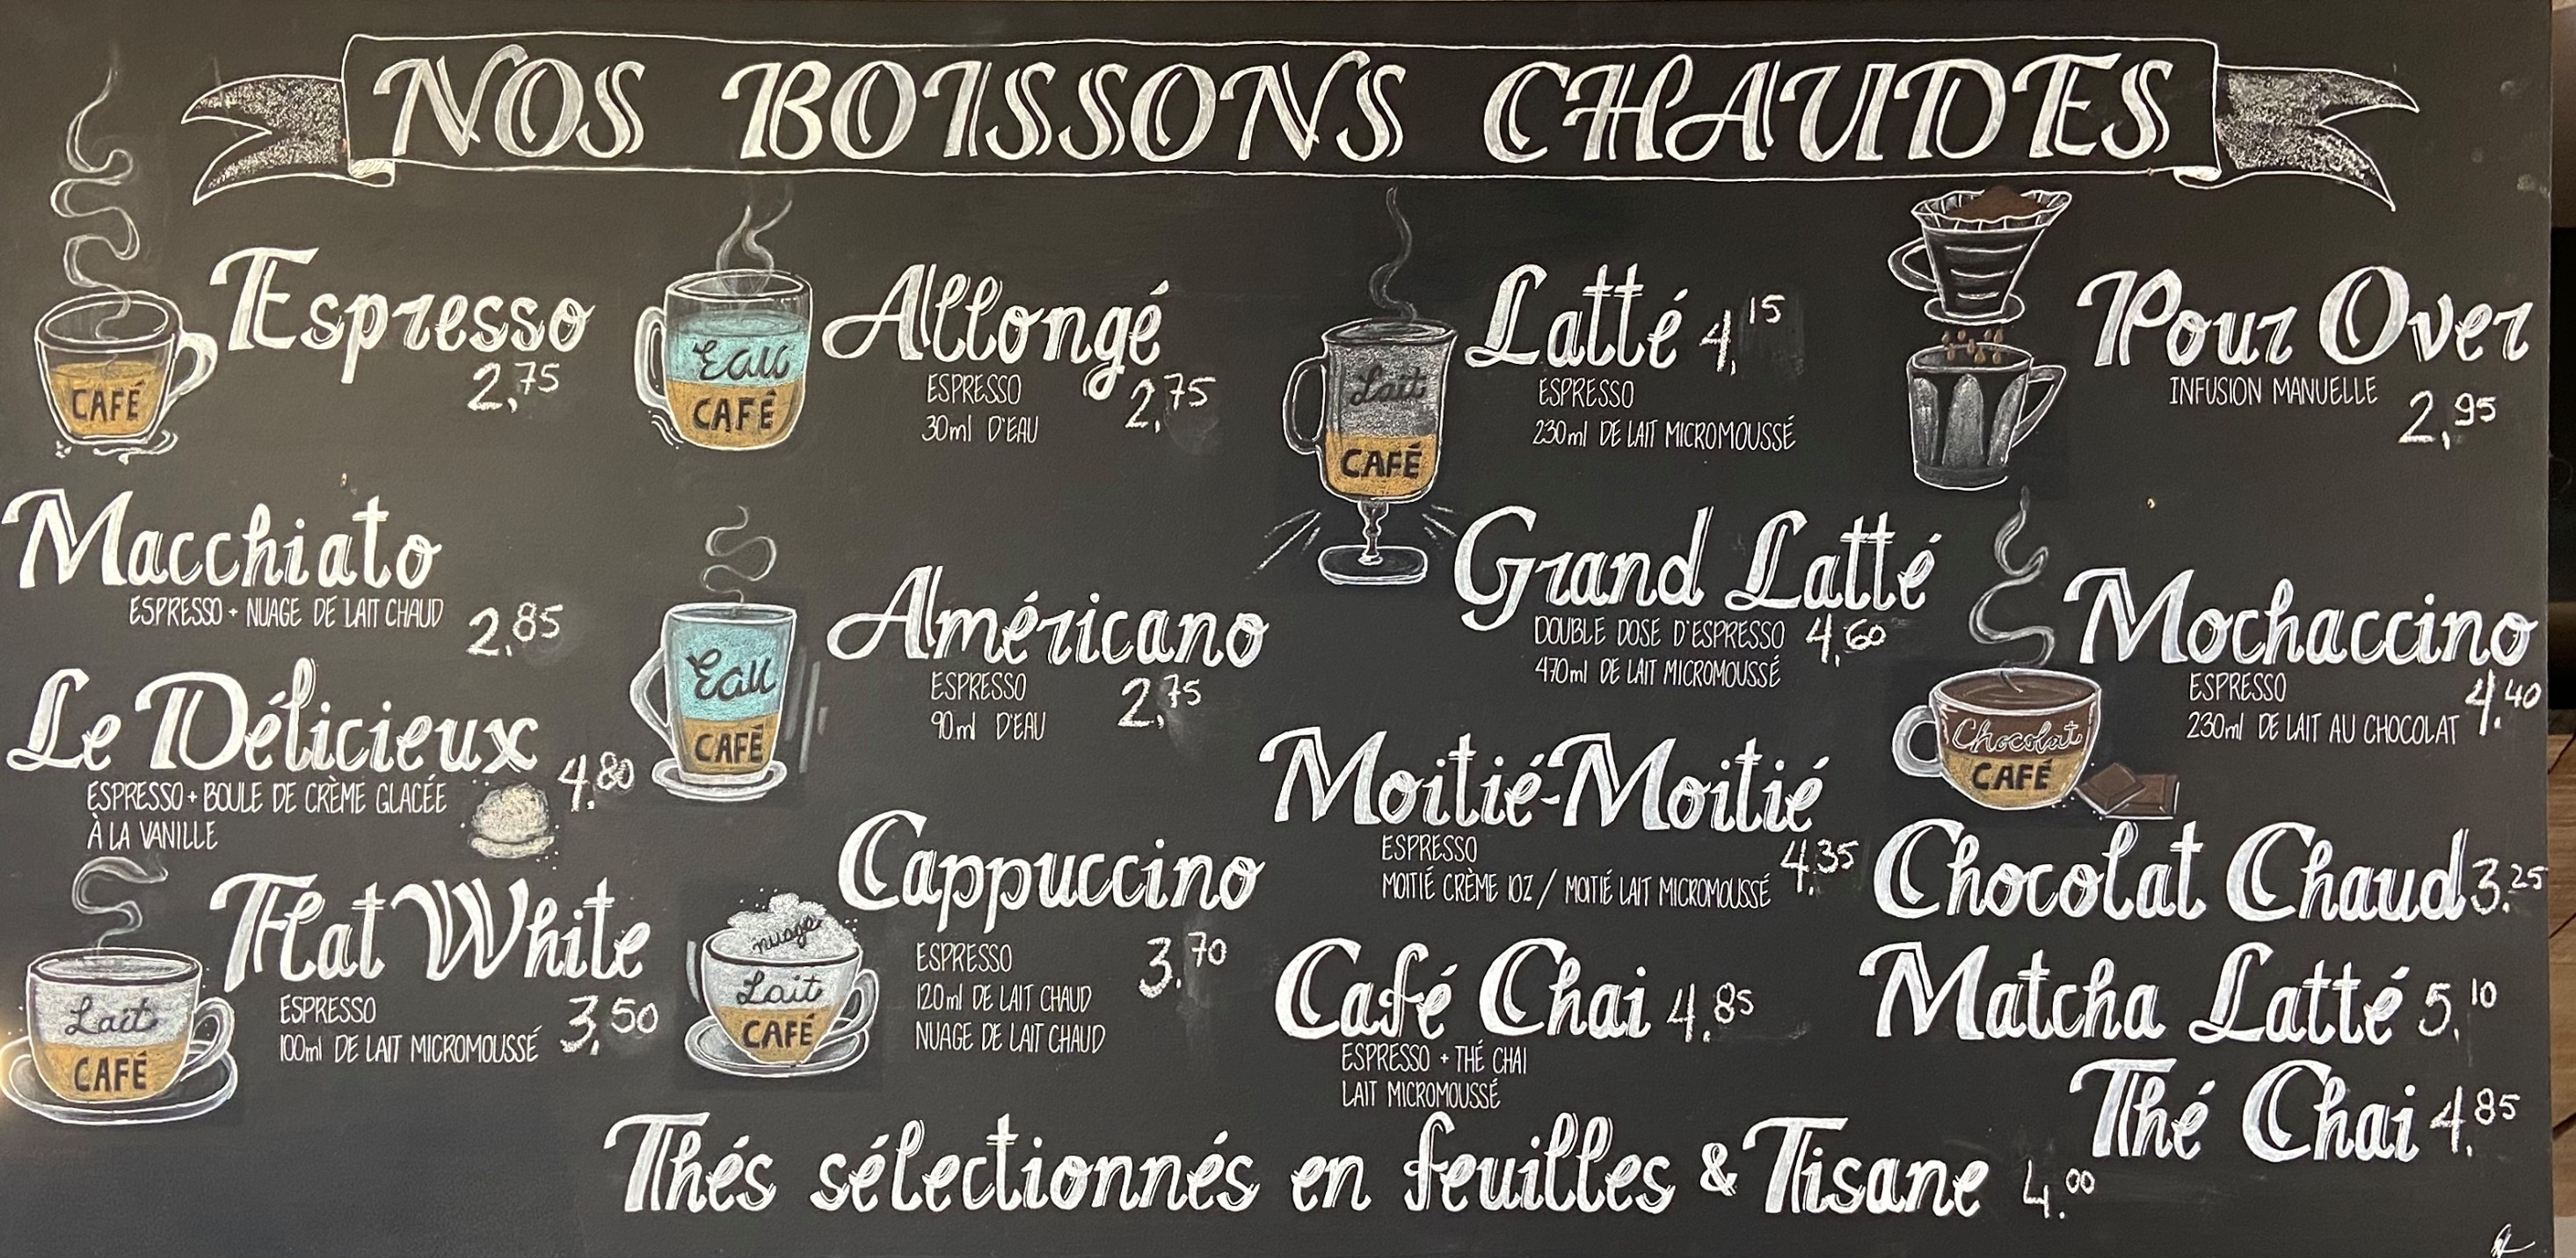 NOS BOISSONS CHAUDES
CAFÉ
Espresso
2,75
Macchiato
ESPRESSO + NUAGE DE LAIT CHAUD
2,85
Le Délicieux
4,80
ESPRESSO + BOULE DE CRÈME GLACÉE
À LA VANILLE
Flat White
ESPRESSO
100ml DE LAIT MICROMOUSSÉ
3,50
Lait
CAFÉ
Eau
CAFÉ
Allongé
ESPRESSO
30ml D'EAU
2,75
Eau
CAFÉ
Américano
ESPRESSO
90ml D'EAU
2,75
Cappuccino
ESPRESSO
120ml DE LAIT CHAUD
NUAGE DE LAIT CHAUD
3,70
nuage
Lait
CAFÉ
Lait
CAFÉ
Latté 4,15
ESPRESSO
230ml DE LAIT MICROMOUSSÉ
Grand Latté
DOUBLE DOSE D'ESPRESSO 4,60
470ml DE LAIT MICROMOUSSÉ
Moitié-Moitié
ESPRESSO
MOITIÉ CRÈME 10% / MOITIÉ LAIT MICROMOUSSÉ
4,35
Café Chai 4,85
ESPRESSO + THÉ CHAI
LAIT MICROMOUSSÉ
Pour Over
INFUSION MANUELLE
2,95
Mochaccino
ESPRESSO
230ml DE LAIT AU CHOCOLAT
4,40
Chocolat
CAFÉ
Chocolat Chaud 3,25
Matcha Latté 5,10
Thé Chai 4,85
Thés sélectionnés en feuilles & Tisane 4,00